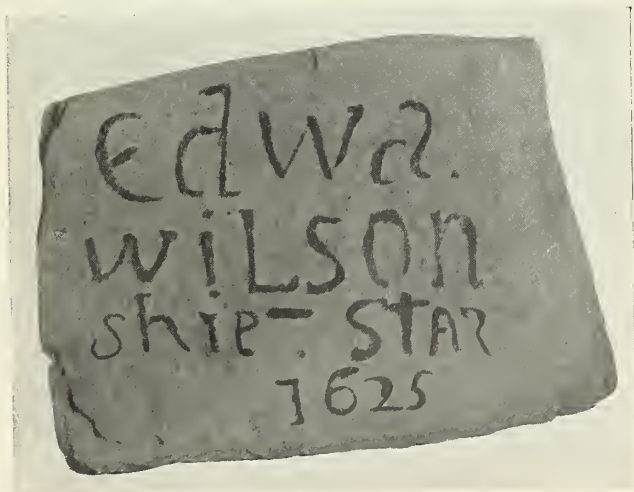 Edwa.
wiLSOn
ship-. StAr
1625